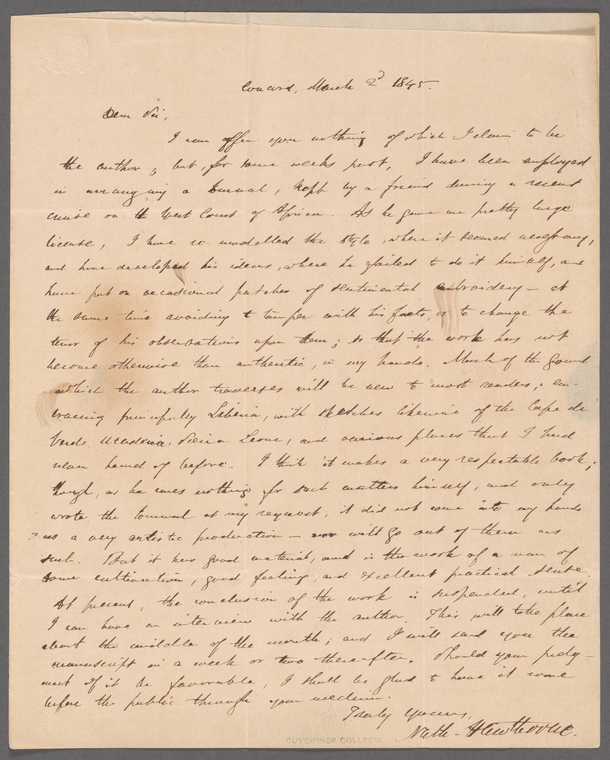 Concord, March 2d 1845.
Dear Sir,
I can offer you nothing of which I claim to be
the author; but, for some weeks past, I have been employed
in arranging a Journal, kept by a friend during a recent
cruise on the West Coast of Africa. As he gave me pretty large
license, I have re-modelled the style, where it seemed necessary,
and have developed his ideas, where he failed to do it himself, and
have put on occasional patches of sentimental embroidery — at
the same time avoiding to tamper with his facts, or to change the
tenor of his observations upon them; so that the work has not
become otherwise than authentic, in my hands. Much of the ground
which the author traverses will be new to most readers; em-
bracing principally Liberia, with sketches likewise of the Cape de
Verds, Madeira, Sierra Leone, and various places that I had
never heard of before. I think it makes a very respectable book;
though, as he cares nothing for such matters himself, and only
wrote the Journal at my request, it did not come into my hands
as a very artistic production — nor will go out of them as
such. But it has good material, and is the work of a man of
some cultivation, good feeling, and excellent practical sense.
At present, the conclusion of the work is suspended, until
I can have an interview with the author. This will take place
about the middle of the month; and I will send you the
manuscript in a week or two thereafter. Should your judg-
ment of it be favorable, I shall be glad to have it come
before the public through your medium.
Truly Yours,
Nath. Hawthorne.
DUYCKINCK COLLEC'N